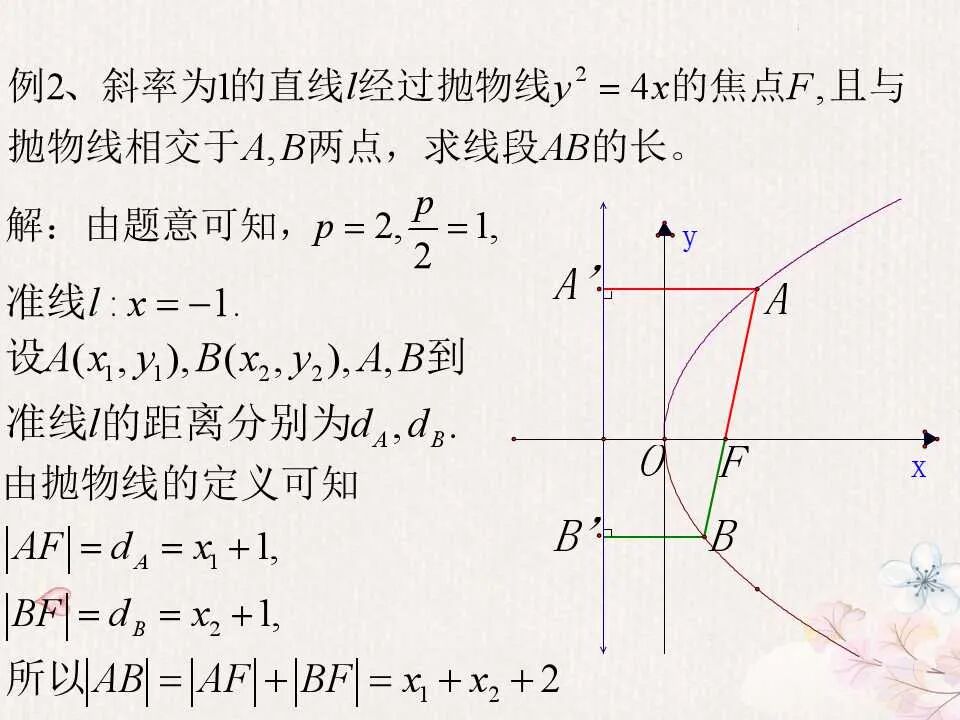 例2、斜率为1的直线l经过抛物线y² = 4x的焦点F,且与
抛物线相交于A,B两点，求线段AB的长。
解：由题意可知，p = 2, p/2 = 1,
准线l : x = −1.
设A(x₁, y₁), B(x₂, y₂), A, B到
准线l的距离分别为d_A, d_B.
由抛物线的定义可知
|AF| = d_A = x₁ + 1,
|BF| = d_B = x₂ + 1,
所以|AB| = |AF| + |BF| = x₁ + x₂ + 2
y
A'
A
O
F
x
B'
B